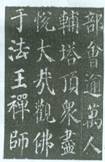 部會通萬人
輔塔頂衆盡
悅大哉觀佛
于法王禪師